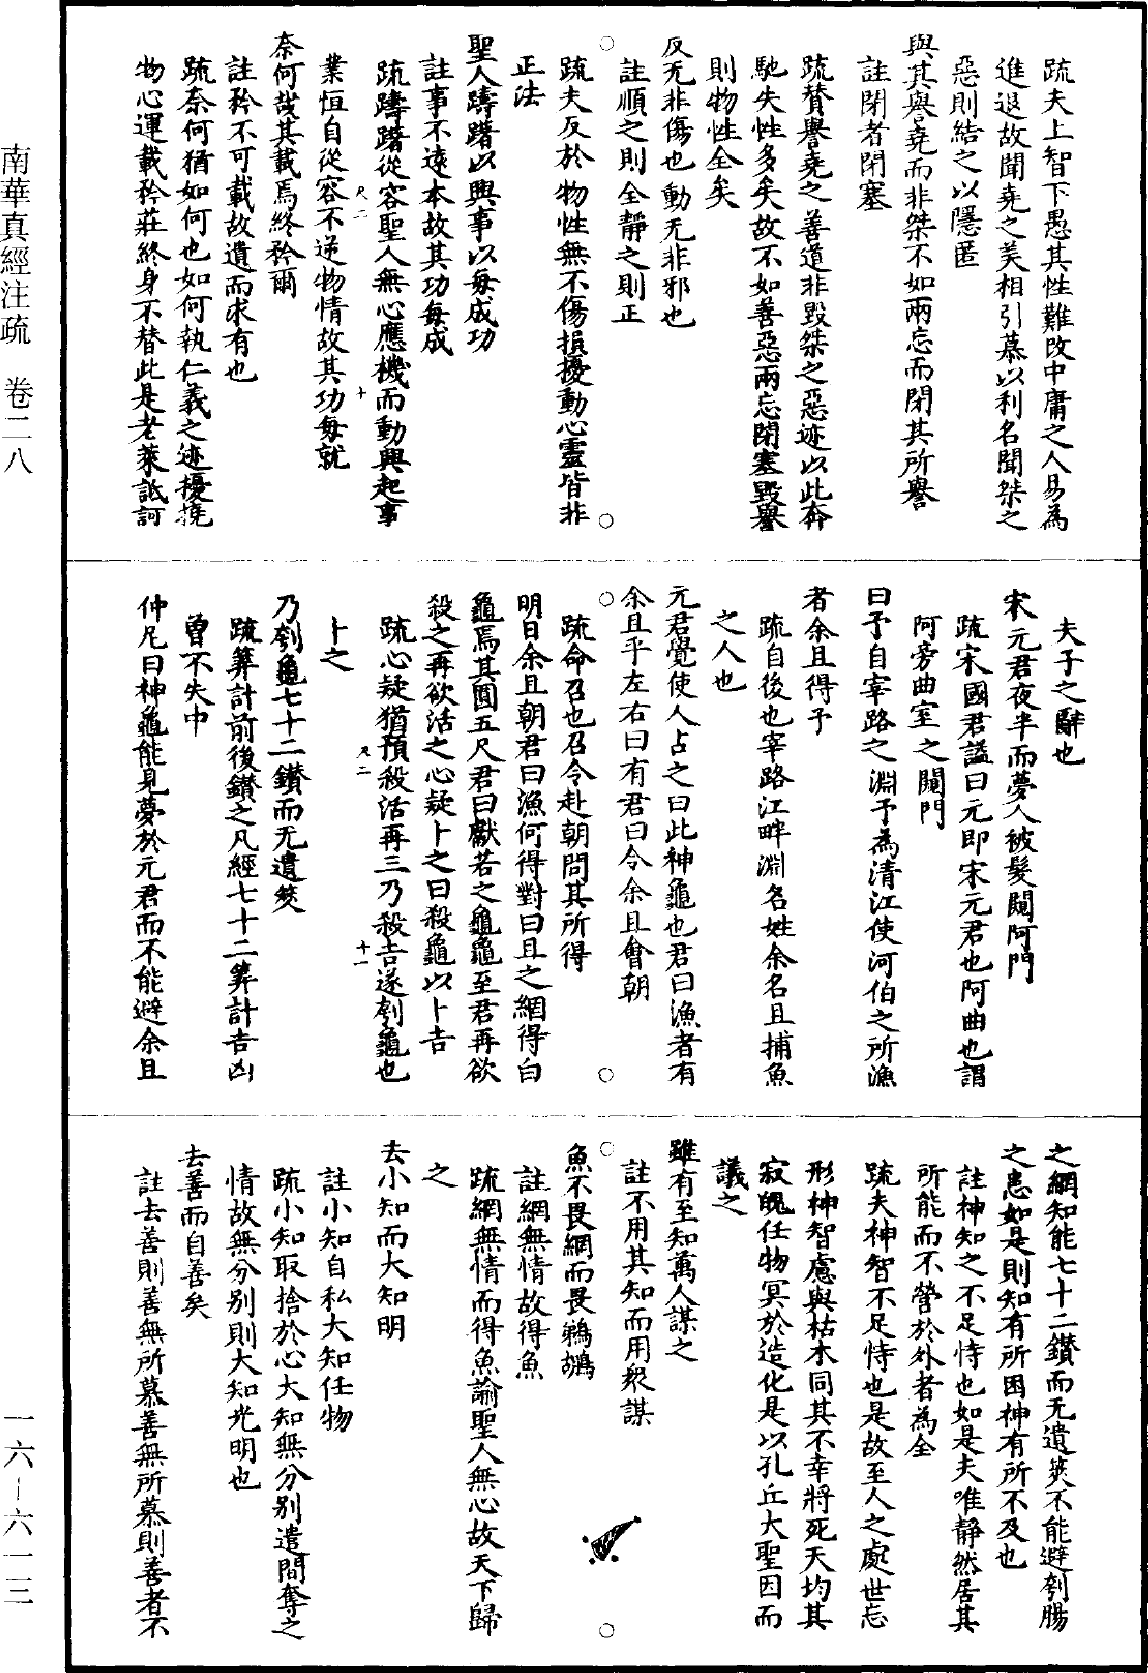 疏夫上智下愚其性難改中庸之人易為
進退故聞堯之美相引慕以利名聞桀之
惡則結之以隱匿
與其譽堯而非桀不如兩忘而閉其所譽
註閉者閉塞
疏賛譽堯之善道非毀桀之惡迹以此奔
馳失性多矣故不如善惡兩忘閉塞毀譽
則物性全矣
反无非傷也動无非邪也
註順之則全靜之則正
疏夫反於物性無不傷損擾動心靈皆非
正法
聖人躊躇以興事以每成功
註事不遠本故其功每成
疏躊躇從容聖人無心應機而動興起事
業恒自從容不逆物情故其功每就
奈何哉其載焉終矜爾
註矜不可載故遺而求有也
疏奈何猶如何也如何執仁義之迹擾撓
物心運載矜莊終身不替此是老萊詆訶
夫子之辭也
宋元君夜半而夢人被髮闚阿門
疏宋國君謚曰元即宋元君也阿曲也謂
阿旁曲室之闚門
曰予自宰路之淵予為清江使河伯之所漁
者余且得予
疏自後也宰路江畔淵名姓余名且捕魚
之人也
元君覺使人占之曰此神龜也君曰漁者有
余且乎左右曰有君曰令余且會朝
疏命召也召令赴朝問其所得
明日余且朝君曰漁何得對曰且之網得白
龜焉其圓五尺君曰獻若之龜龜至君再欲
殺之再欲活之心疑卜之曰殺龜以卜吉
疏心疑猶預殺活再三乃殺吉遂刳龜也
卜之
乃刳龜七十二鑽而无遺筴
疏筭計前後鑽之凡經七十二筭計吉凶
曾不失中
仲尼曰神龜能見夢於元君而不能避余且
之網知能七十二鑽而无遺筴不能避刳腸
之患如是則知有所困神有所不及也
註神知之不足恃也如是夫唯靜然居其
所能而不營於外者為全
疏夫神智不足恃也是故至人之處世忘
形神智慮與枯木同其不幸將死天均其
寂魄任物冥於造化是以孔丘大聖因而
議之
雖有至知萬人謀之
註不用其知而用衆謀
魚不畏網而畏鵜鶘
註網無情故得魚
疏網無情而得魚諭聖人無心故天下歸
之
去小知而大知明
註小知自私大知任物
疏小知取捨於心大知無分別遣間奪之
情故無分別則大知光明也
去善而自善矣
註去善則善無所慕善無所慕則善者不
南華真經注疏　卷二八
一六—六一三